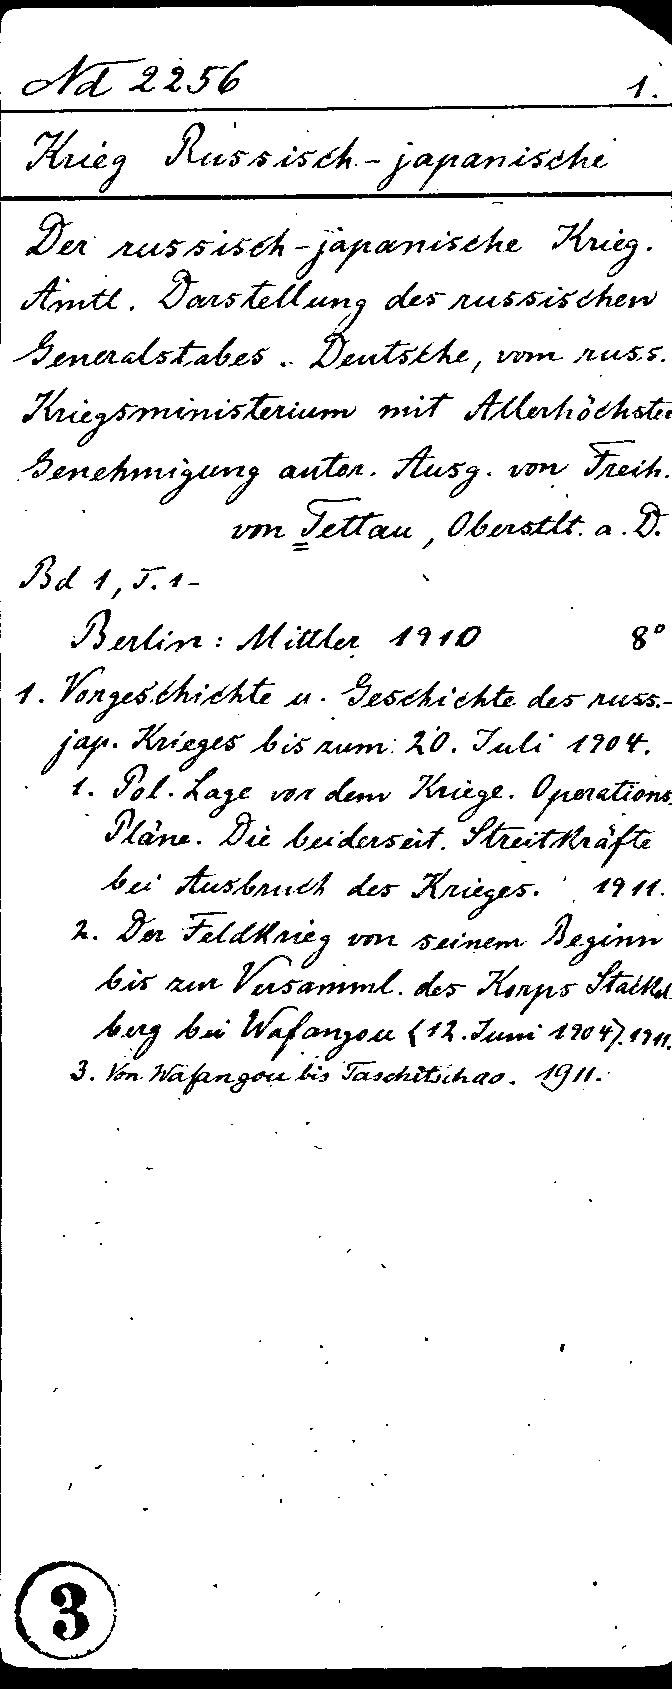 Nd 2256 1.
Krieg Russisch-japanische
Der russisch-japanische Krieg.
Amtl. Darstellung des russischen
Generalstabes. Deutsche, vom russ.
Kriegsministerium mit Allerhöchster
Genehmigung autor. Ausg. von Freih.
von Tettau, Oberstlt. a. D.
Bd 1, T. 1-
Berlin: Mittler 1910 8°
1. Vorgeschichte u. Geschichte des russ.-
jap. Krieges bis zum 20. Juli 1904.
1. Pol. Lage vor dem Kriege. Operations-
Pläne. Die beiderseit. Streitkräfte
bei Ausbruch des Krieges. 1911.
2. Der Feldkrieg von seinem Beginn
bis zur Versamml. des Korps Stackel
berg bei Wafangou (12. Juni 1904). 1911.
3. Von Wafangou bis Taschitschao. 1911.
3